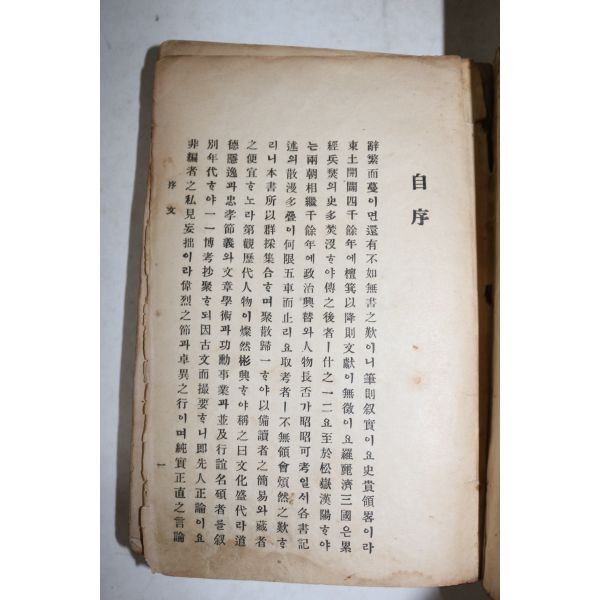 自序
辭繁而蔓이면還有不如無書之歎이니筆則叙實이요史貴領畧이라
東土開闢四千餘年에檀箕以降則文獻이無徵이요羅麗濟三國은累
經兵燹의史多焚沒ᄒᆞ야傳之後者ㅣ什之一二요至於松嶽漢陽ᄒᆞ야
는兩朝相繼千餘年에政治興替와人物長否가昭昭可考일ᄉᆡ各書記
述의散漫多疊이何限五車而止리요取考者ㅣ不無領會煩然之歎ᄒᆞ
리니本書所以群採集合ᄒᆞ며聚散歸一ᄒᆞ야以備讀者之簡易와藏者
之便宜ᄒᆞ노라第觀歷代人物이燦然彬興ᄒᆞ야稱之曰文化盛代라道
德隱逸과忠孝節義와文章學術과功勳事業과並及行誼名碩者를叙
別年代ᄒᆞ야一一博考抄聚ᄒᆞ되因古文而撮要ᄒᆞ니卽先人正論이요
非編者之私見妄拙이라偉烈之節과卓異之行이며純實正直之言論
序文
一